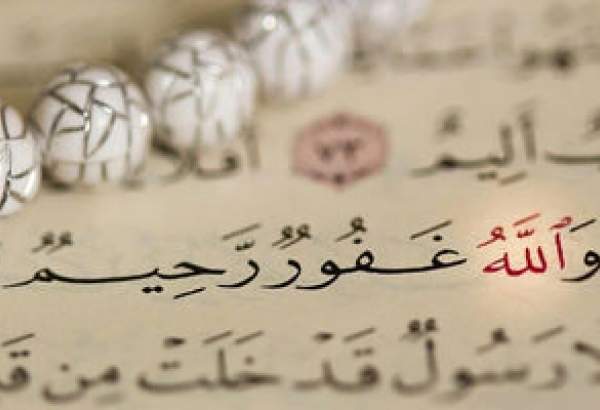 أَلِيمٌ ٧٣ أَفَلَا
وَٱللَّهُ غَفُورٌ رَّحِيمٌ
رَسُولٌ قَدْ خَلَتْ مِن